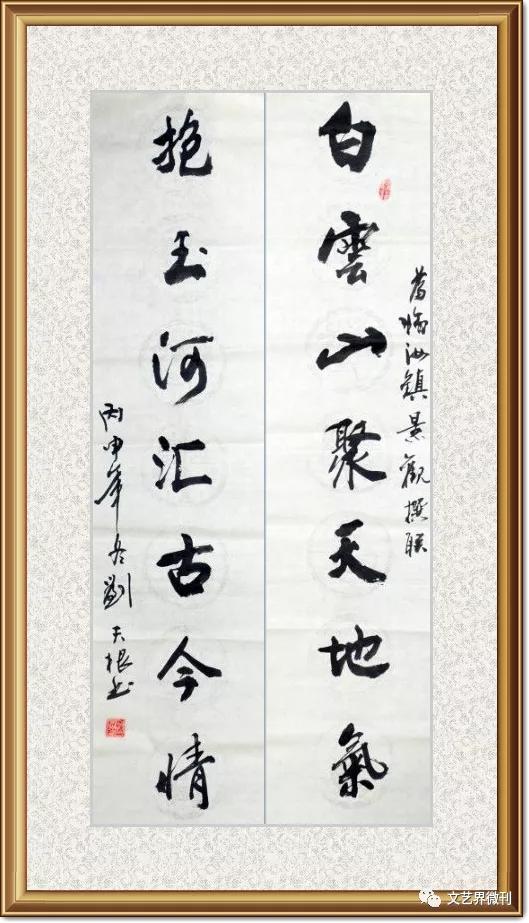 為临汝鎮景觀撰联
白雲山聚天地氣
抱玉河汇古今情
丙申年冬劉天根书
文艺界微刊